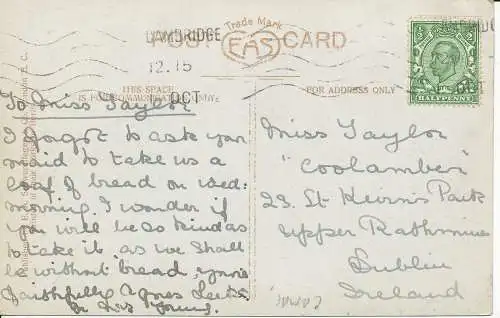 Trade Mark
POST CARD
EAS
CAMBRIDGE
12.15
OCT
HALFPENNY
THIS SPACE
IS FOR COMMUNICATION
FOR ADDRESS ONLY
To Miss Taylor
I forgot to ask your
maid to take us a
loaf of bread on Wed:
morning. I wonder if
you will be so kind as
to take it as we shall
be without bread, yours
faithfully Agnes
Miss Taylor
"Coolamber"
23. St Kevin's Park
Upper Rathmines
Dublin
Ireland